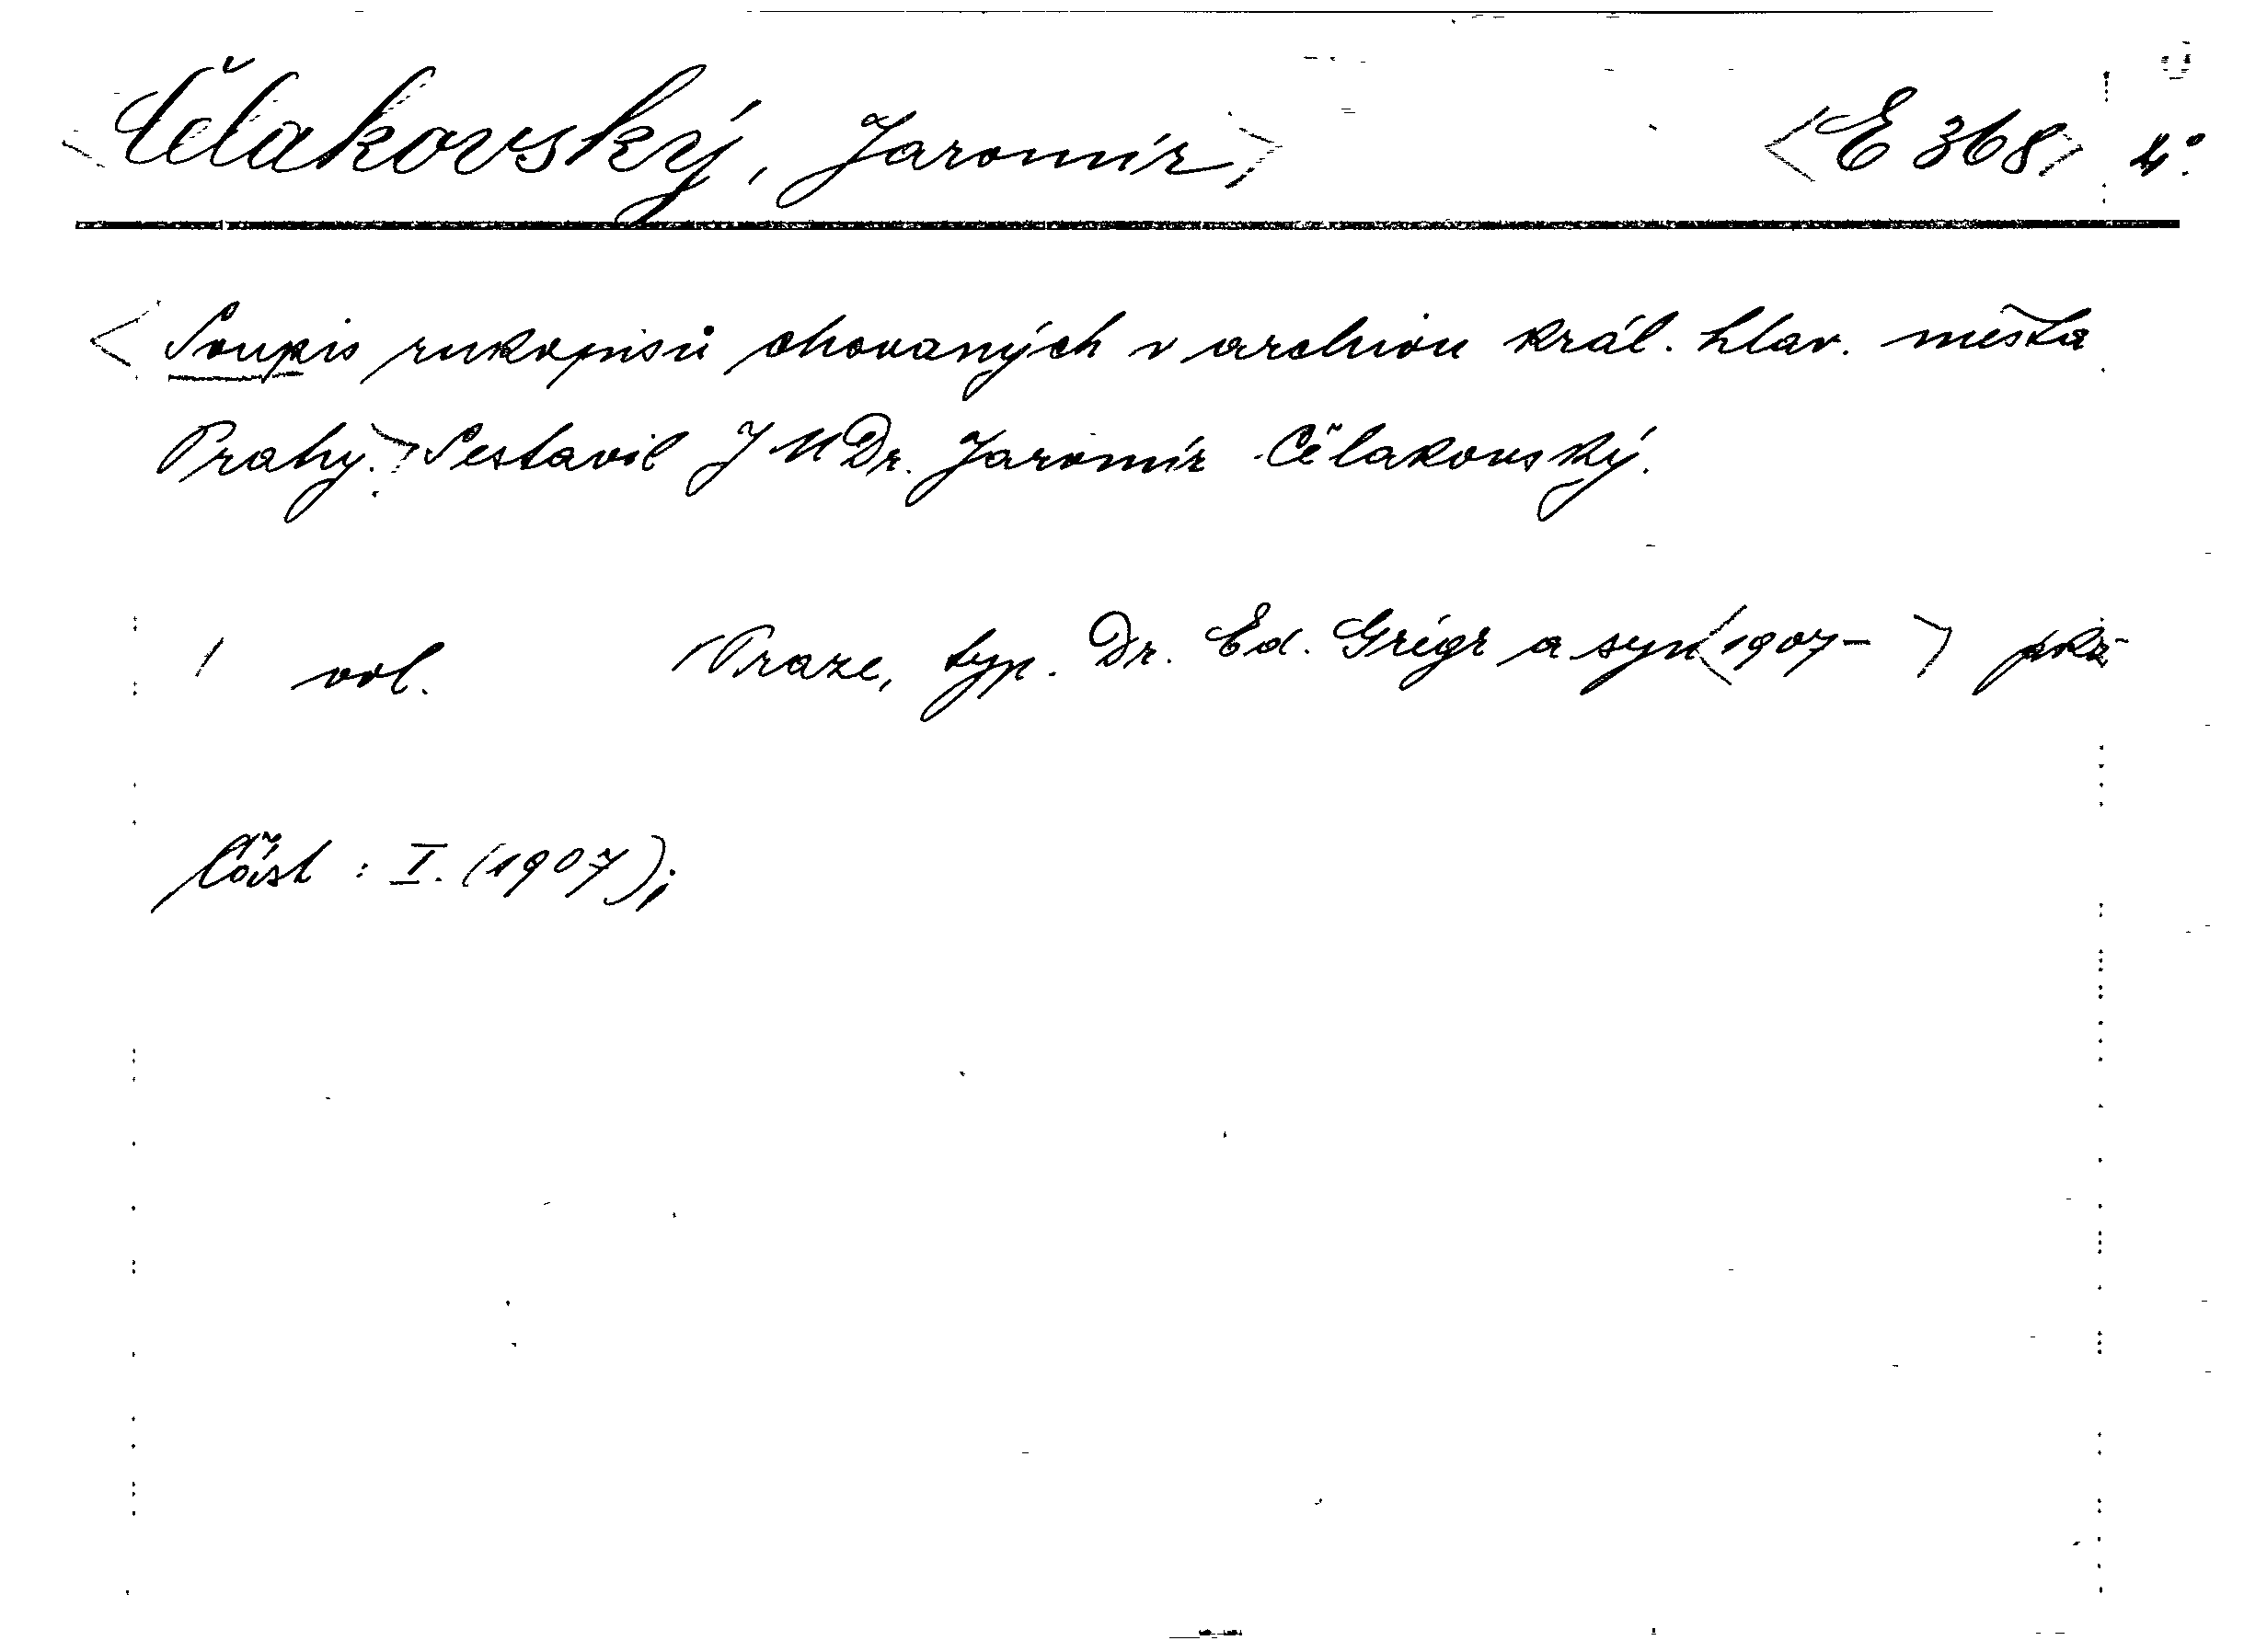 <Čelakovský, Jaromír> <E 368> 4°.
<Soupis rukopisů chovaných v archivu král. hlav. města
Prahy.> Sestavil JUDr. Jaromír Čelakovský.
1 vol. V Praze, typ. Dr. Ed. Grégr a syn <1907- >
Část : I. (1907);